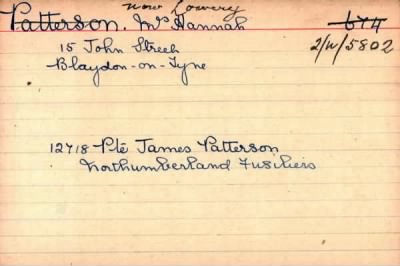 now Lowery
Patterson, Mrs Hannah 674
15 John Street 2/W/5802
Blaydon-on-Tyne
12718 Pte James Patterson
Northumberland Fusiliers